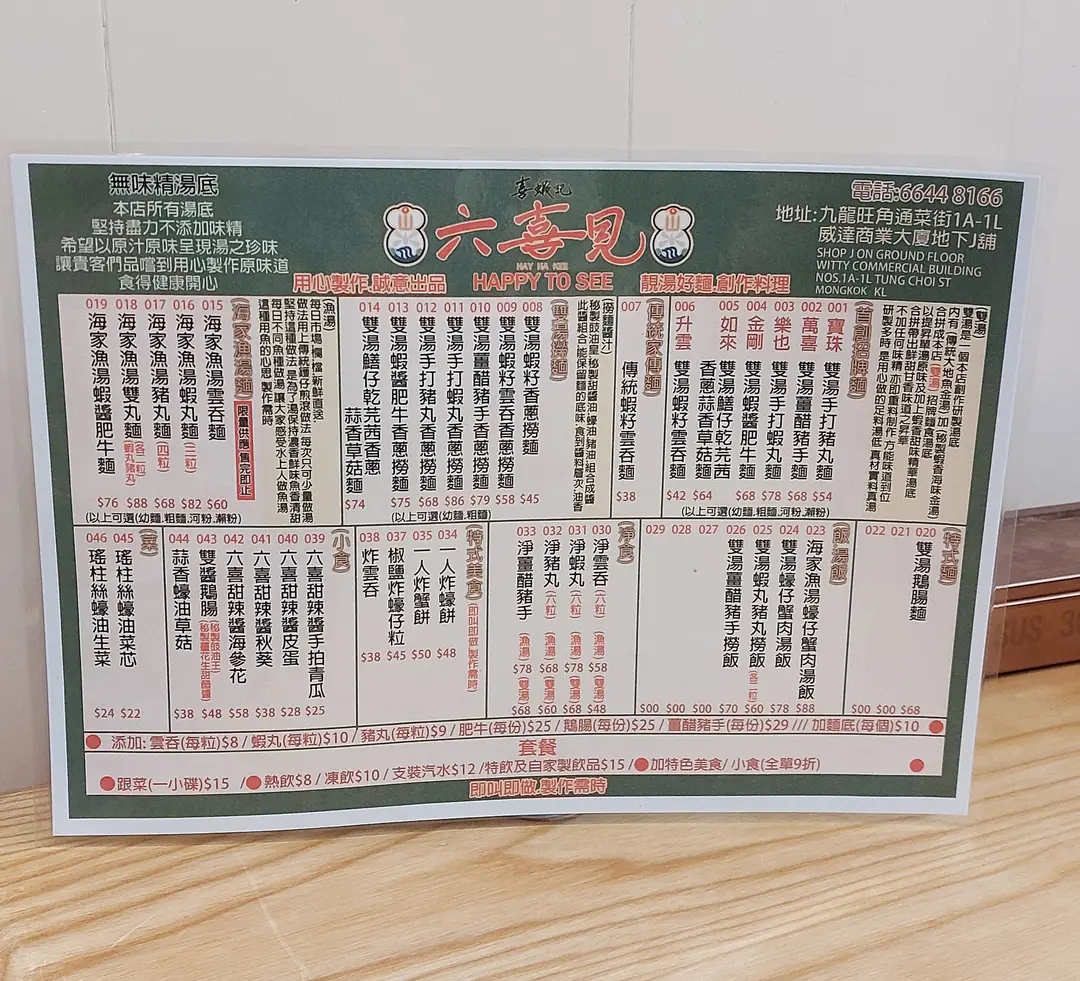 無味精湯底
本店所有湯底
堅持盡力不添加味精
希望以原汁原味呈現湯之珍味
讓貴客們品嚐到用心製作原味道
食得健康開心
六喜見
HAY HA KEE
HAPPY TO SEE
用心製作.誠意出品
靚湯好麵.創作料理
電話:6644 8166
地址:九龍旺角通菜街1A-1L
威達商業大廈地下J舖
SHOP J ON GROUND FLOOR
WITTY COMMERCIAL BUILDING
NOS.1A-1L TUNG CHOI ST
MONGKOK KL
(雙湯)
雙湯是一個本店創作研製湯底
內有(傳統大地魚金湯)加(秘製蝦香海味金湯)
合拼成本店(雙湯)招牌麵食湯底
以提昇單湯原味及加上蝦香甜味精華湯底
合拼帶出鮮甜甘香味道之昇華
不加任何味精 亦即重料制作 方能味道到位
研製多時 是用心做的足料湯低 真材實料真湯
(首創招牌麵)
001 寶珠 雙湯手打豬丸麵 $54
002 萬喜 雙湯薑醋豬手麵 $68
003 樂也 雙湯手打蝦丸麵 $78
004 金剛 雙湯蝦醬肥牛麵 $68
005 如來 雙湯鱔仔乾芫茜香蔥蒜香草菇麵 $64
006 升雲 雙湯蝦籽雲吞麵 $42
(以上可選(幼麵,粗麵,河粉,瀨粉)
(傳統家傳麵)
007 傳統蝦籽雲吞麵 $38
(撈麵醬汁)
秘製豉油皇 秘製甜醬油 蠔油 豬油 組合成醬
此醬組合 能保留麵的底味 食到醬料層次 油香
(雙湯撈麵)
008 雙湯蝦籽香蔥撈麵 $45
009 雙湯蝦籽雲吞香蔥撈麵 $58
010 雙湯薑醋豬手香蔥撈麵 $79
011 雙湯手打蝦丸香蔥撈麵 $86
012 雙湯手打豬丸香蔥撈麵 $68
013 雙湯蝦醬肥牛香蔥撈麵 $75
014 雙湯鱔仔乾芫茜香蔥蒜香草菇麵 $74
(以上可選(幼麵,粗麵)
(漁湯)
每日市場 欄 檔 新鮮直送
做法用上傳統鑊仔煎滾做法 每次只可少量做湯
堅持這種做法 是為了湯保持濃香鮮味魚香清甜
每日不同魚種做湯 讓大家感受水上人做魚湯
這種用魚的心思 製作需時
(海家漁湯麵)
限量供應 售完即止
015 海家漁湯雲吞麵 $60
016 海家漁湯蝦丸麵(三粒) $82
017 海家漁湯豬丸麵(四粒) $68
018 海家漁湯雙丸麵(各二粒)(蝦丸豬丸) $88
019 海家漁湯蝦醬肥牛麵 $76
(以上可選(幼麵,粗麵,河粉,瀨粉)
(特式麵)
020 雙湯鵝腸麵 $68
021 $00
022 $00
飯湯飯
023 海家漁湯蠔仔蟹肉湯飯 $88
024 雙湯蠔仔蟹肉湯飯 $78
025 雙湯蝦丸豬丸撈飯(各一粒) $60
026 雙湯薑醋豬手撈飯 $70
027 $00
028 $00
029 $00
(淨食)
030 淨雲吞(六粒) (漁湯)$58 (雙湯)$48
031 淨蝦丸(六粒) (漁湯)$78 (雙湯)$68
032 淨豬丸(六粒) (漁湯)$68 (雙湯)$60
033 淨薑醋豬手 (漁湯)$78 (雙湯)$68
(特式美食)(即叫即做 製作需時)
034 一人炸蠔餅 $48
035 一人炸蟹餅 $50
037 椒鹽炸蠔仔粒 $45
038 炸雲吞 $38
(小食)
039 六喜甜辣醬手拍青瓜 $25
040 六喜甜辣醬皮蛋 $28
041 六喜甜辣醬秋葵 $38
042 六喜甜辣醬海參花 $58
043 雙醬鵝腸(秘製豉油王)(秘製薑花生甜醋醬) $48
044 蒜香蠔油草菇 $38
(菜)
045 瑤柱絲蠔油菜芯 $22
046 瑤柱絲蠔油生菜 $24
添加: 雲吞(每粒)$8 / 蝦丸(每粒)$10 / 豬丸(每粒)$9 / 肥牛(每份)$25 / 鵝腸(每份)$25 / 薑醋豬手(每份)$29 /// 加麵底(每個)$10
套餐
跟菜(一小碟)$15 / 熱飲$8 / 凍飲$10 / 支裝汽水$12 /特飲及自家製飲品$15 / 加特色美食/ 小食(全單9折)
即叫即做.製作需時